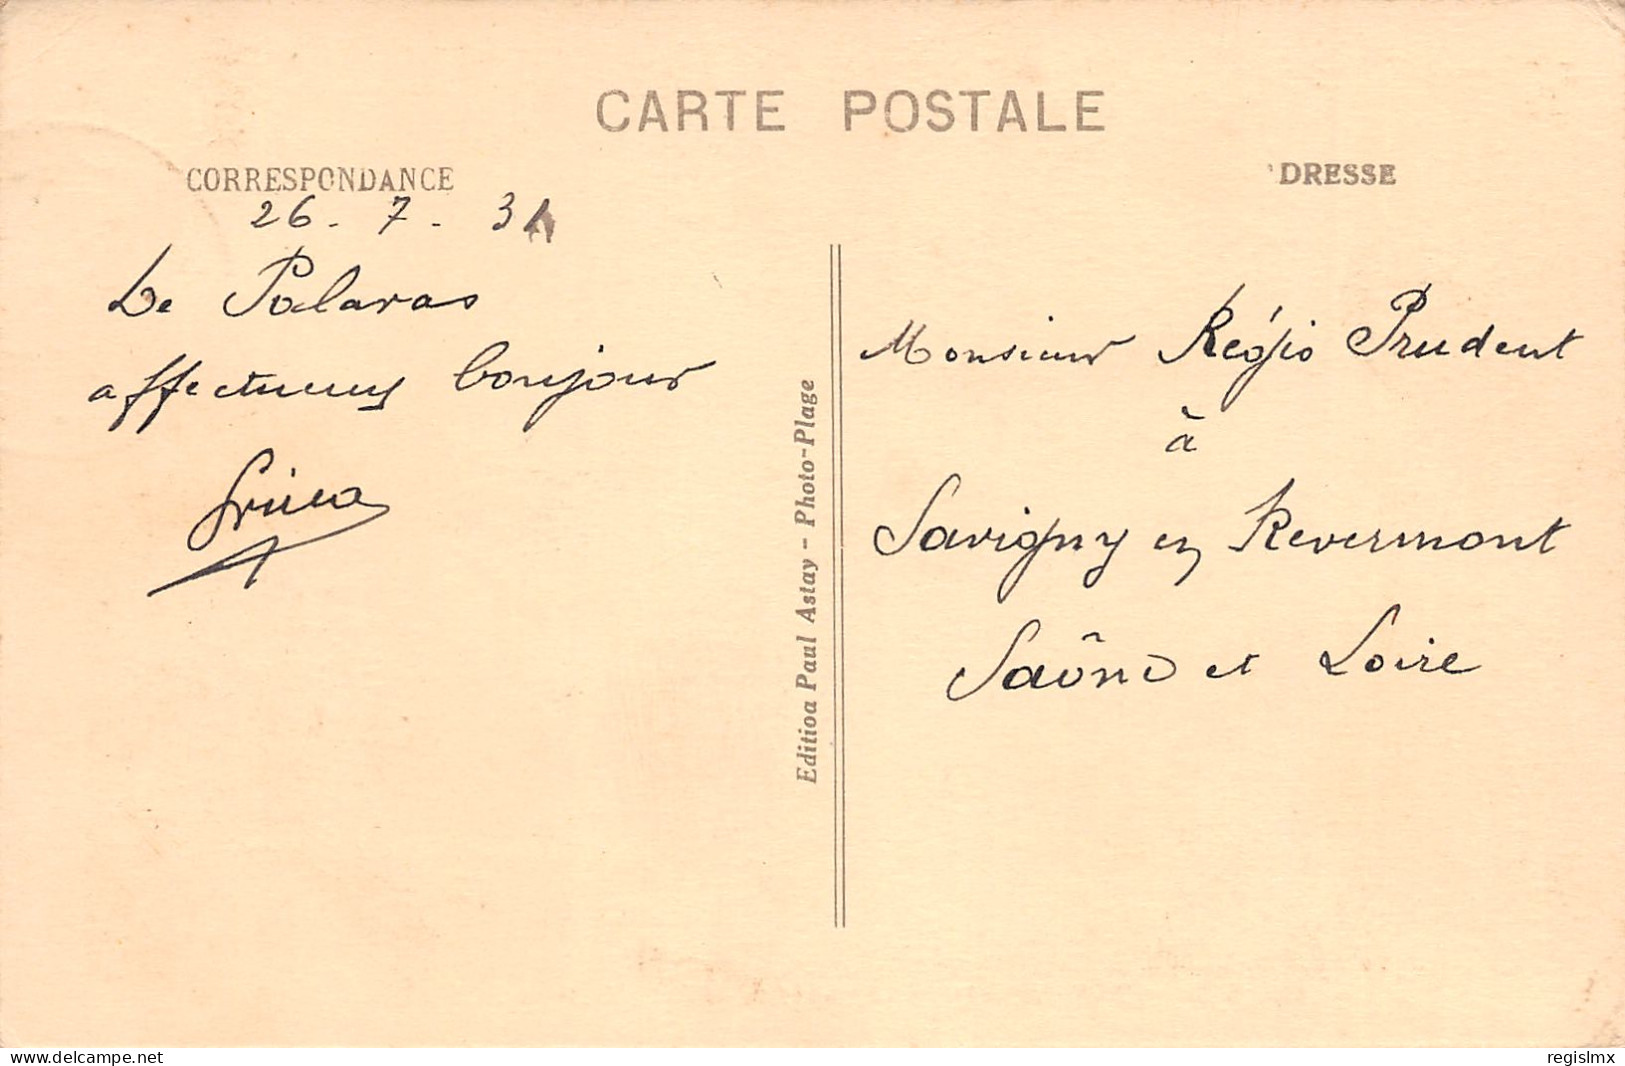 CARTE POSTALE
CORRESPONDANCE
26 - 7 - 31
De Palavas
affectueux bonjour
Editioa Paul Astay - Photo-Plage
DRESSE
Monsieur Régis Prudent
à
Savigny en Revermont
Saône et Loire
www.delcampe.net
regislmx